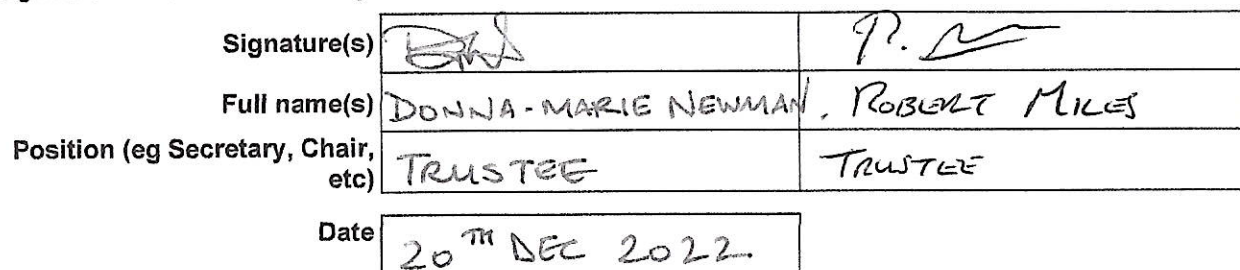 Signature(s) P.
Full name(s) DONNA-MARIE NEWMAN, ROBERT MILES
Position (eg Secretary, Chair, etc) TRUSTEE TRUSTEE
Date 20TH DEC 2022.